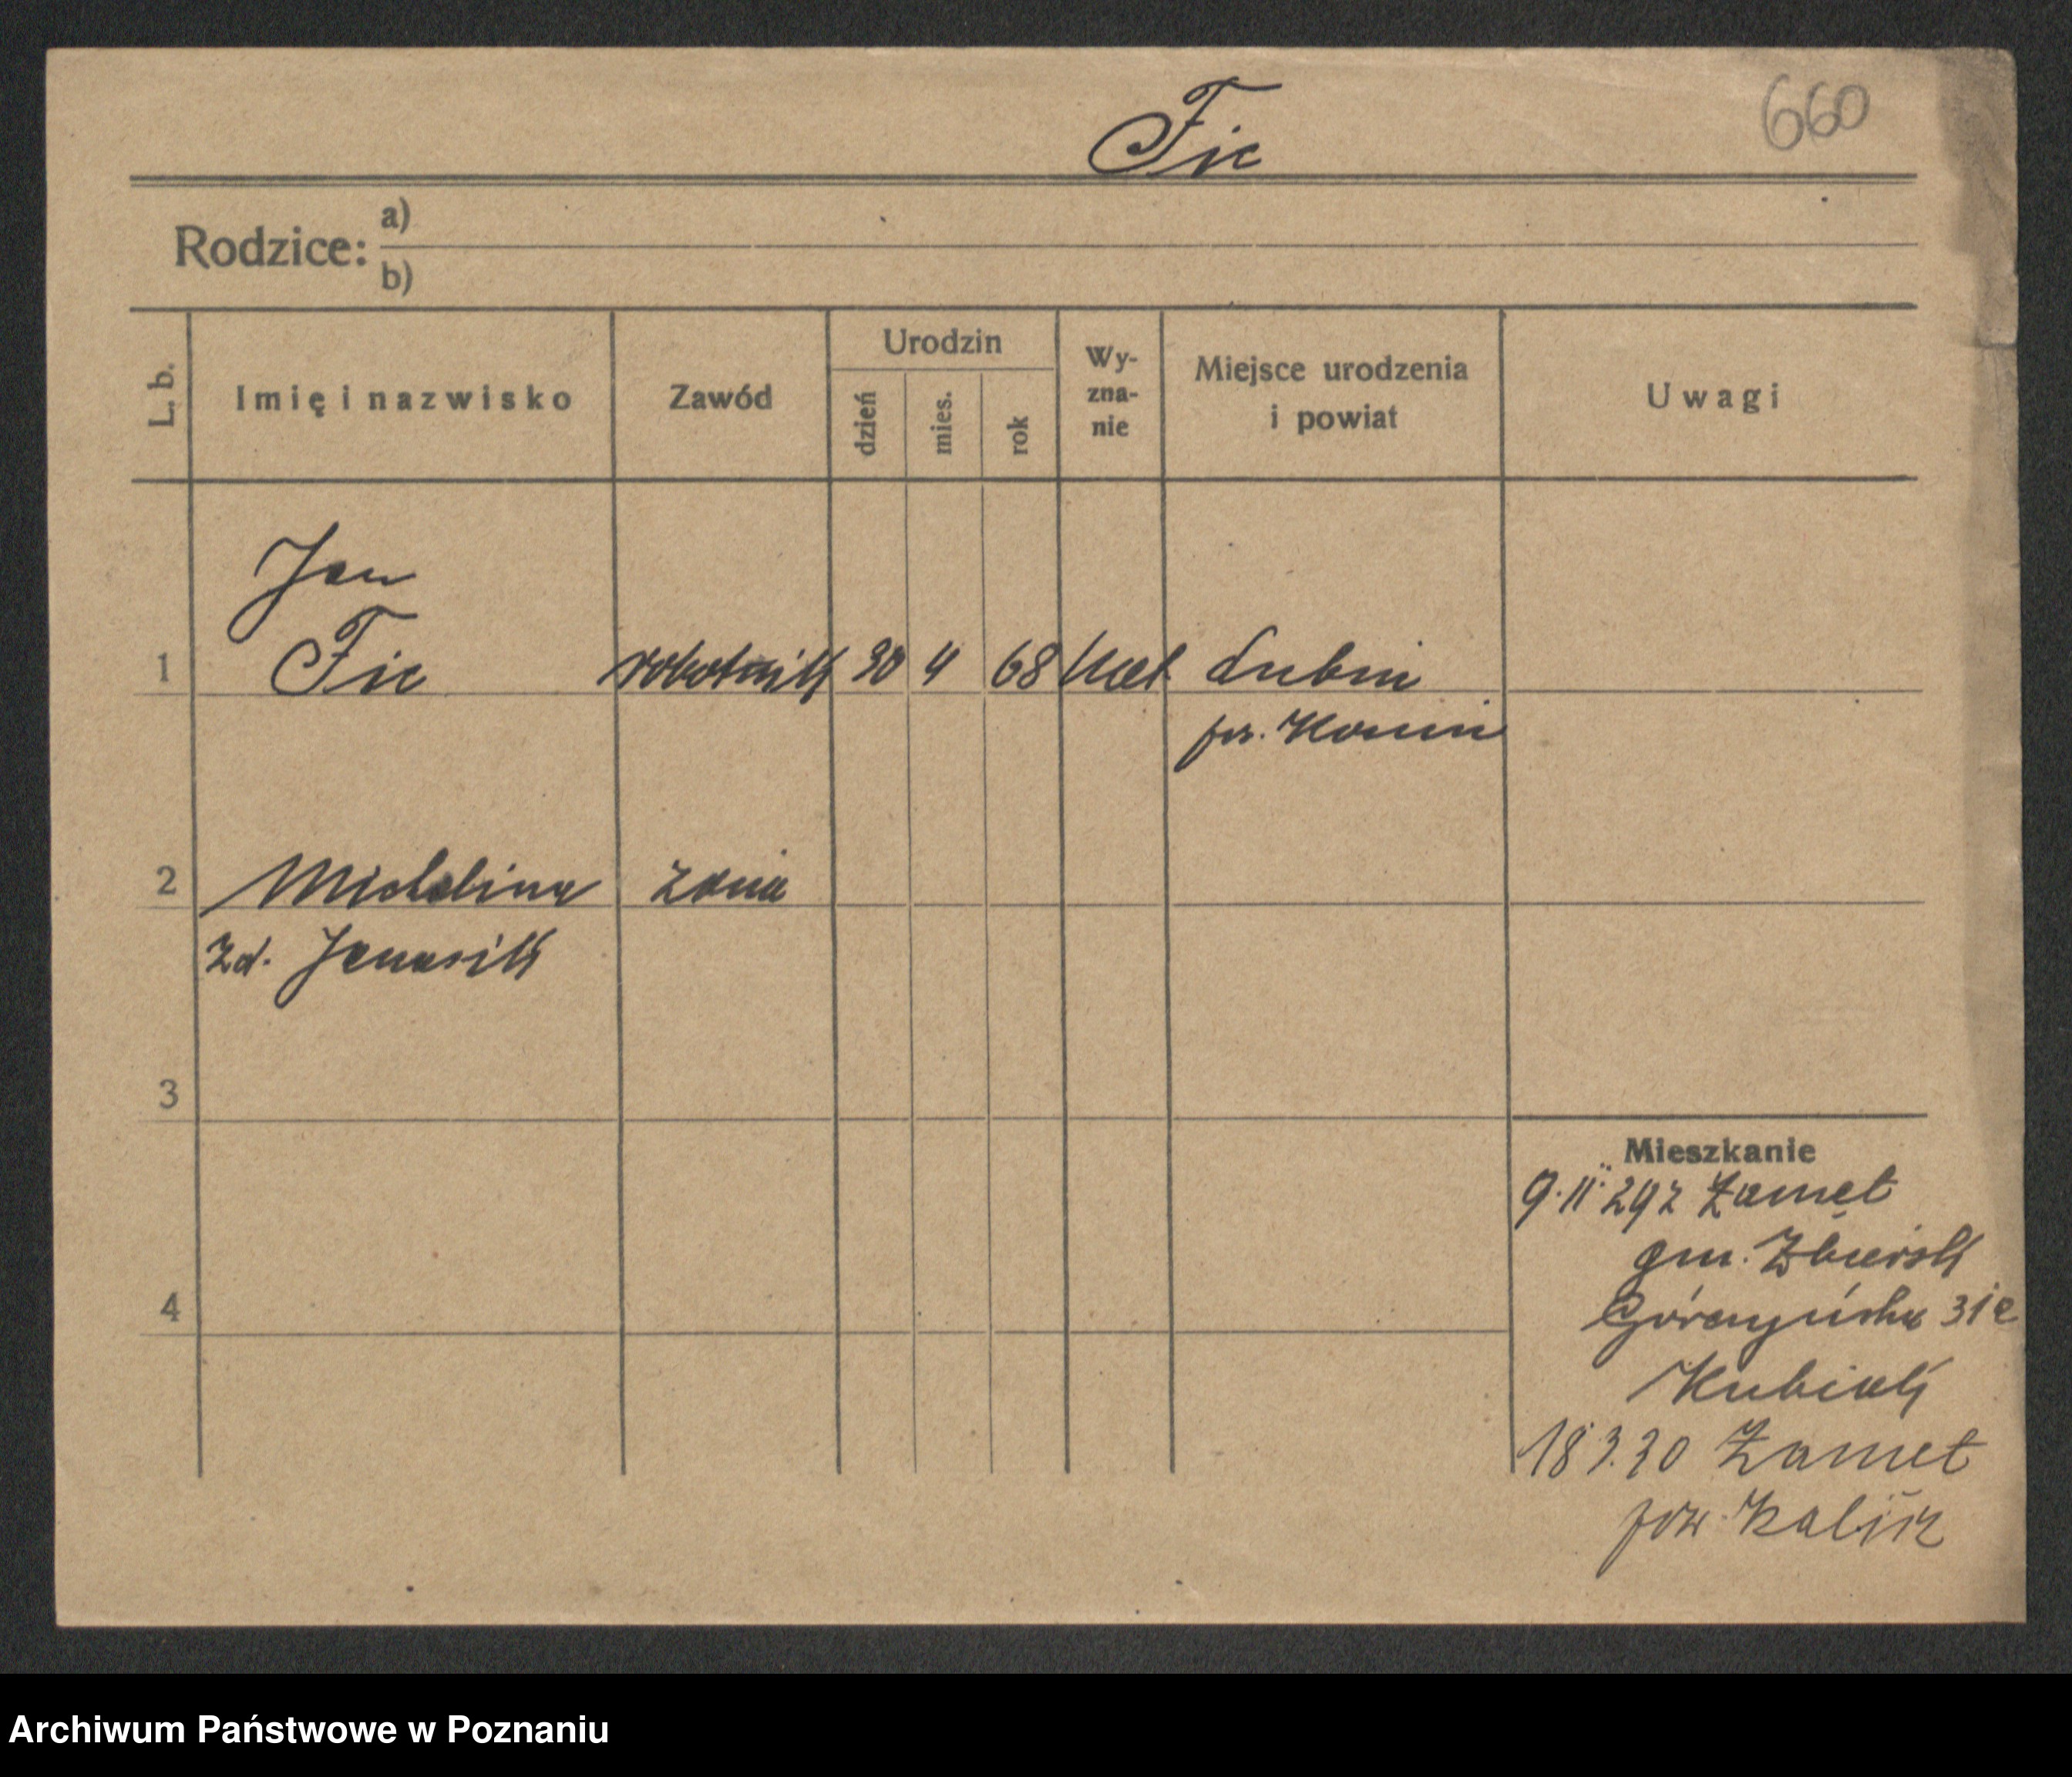 Fic
660
Rodzice: a)
b)
L. b.
Imię i nazwisko
Zawód
Urodzin
dzień
mies.
rok
Wy-
zna-
nie
Miejsce urodzenia
i powiat
Uwagi
Jan
1 Fic robotnik 30 4 68 kat Lubin
pow. Konin
2 Michalina żona
zd. Janasik
3
Mieszkanie
9.11.29 z Zamęt
gm. Zbiersk
4
Górczyńska 31c
Kubiak
18 3.30 Zamęt
pow. Kalisz
Archiwum Państwowe w Poznaniu